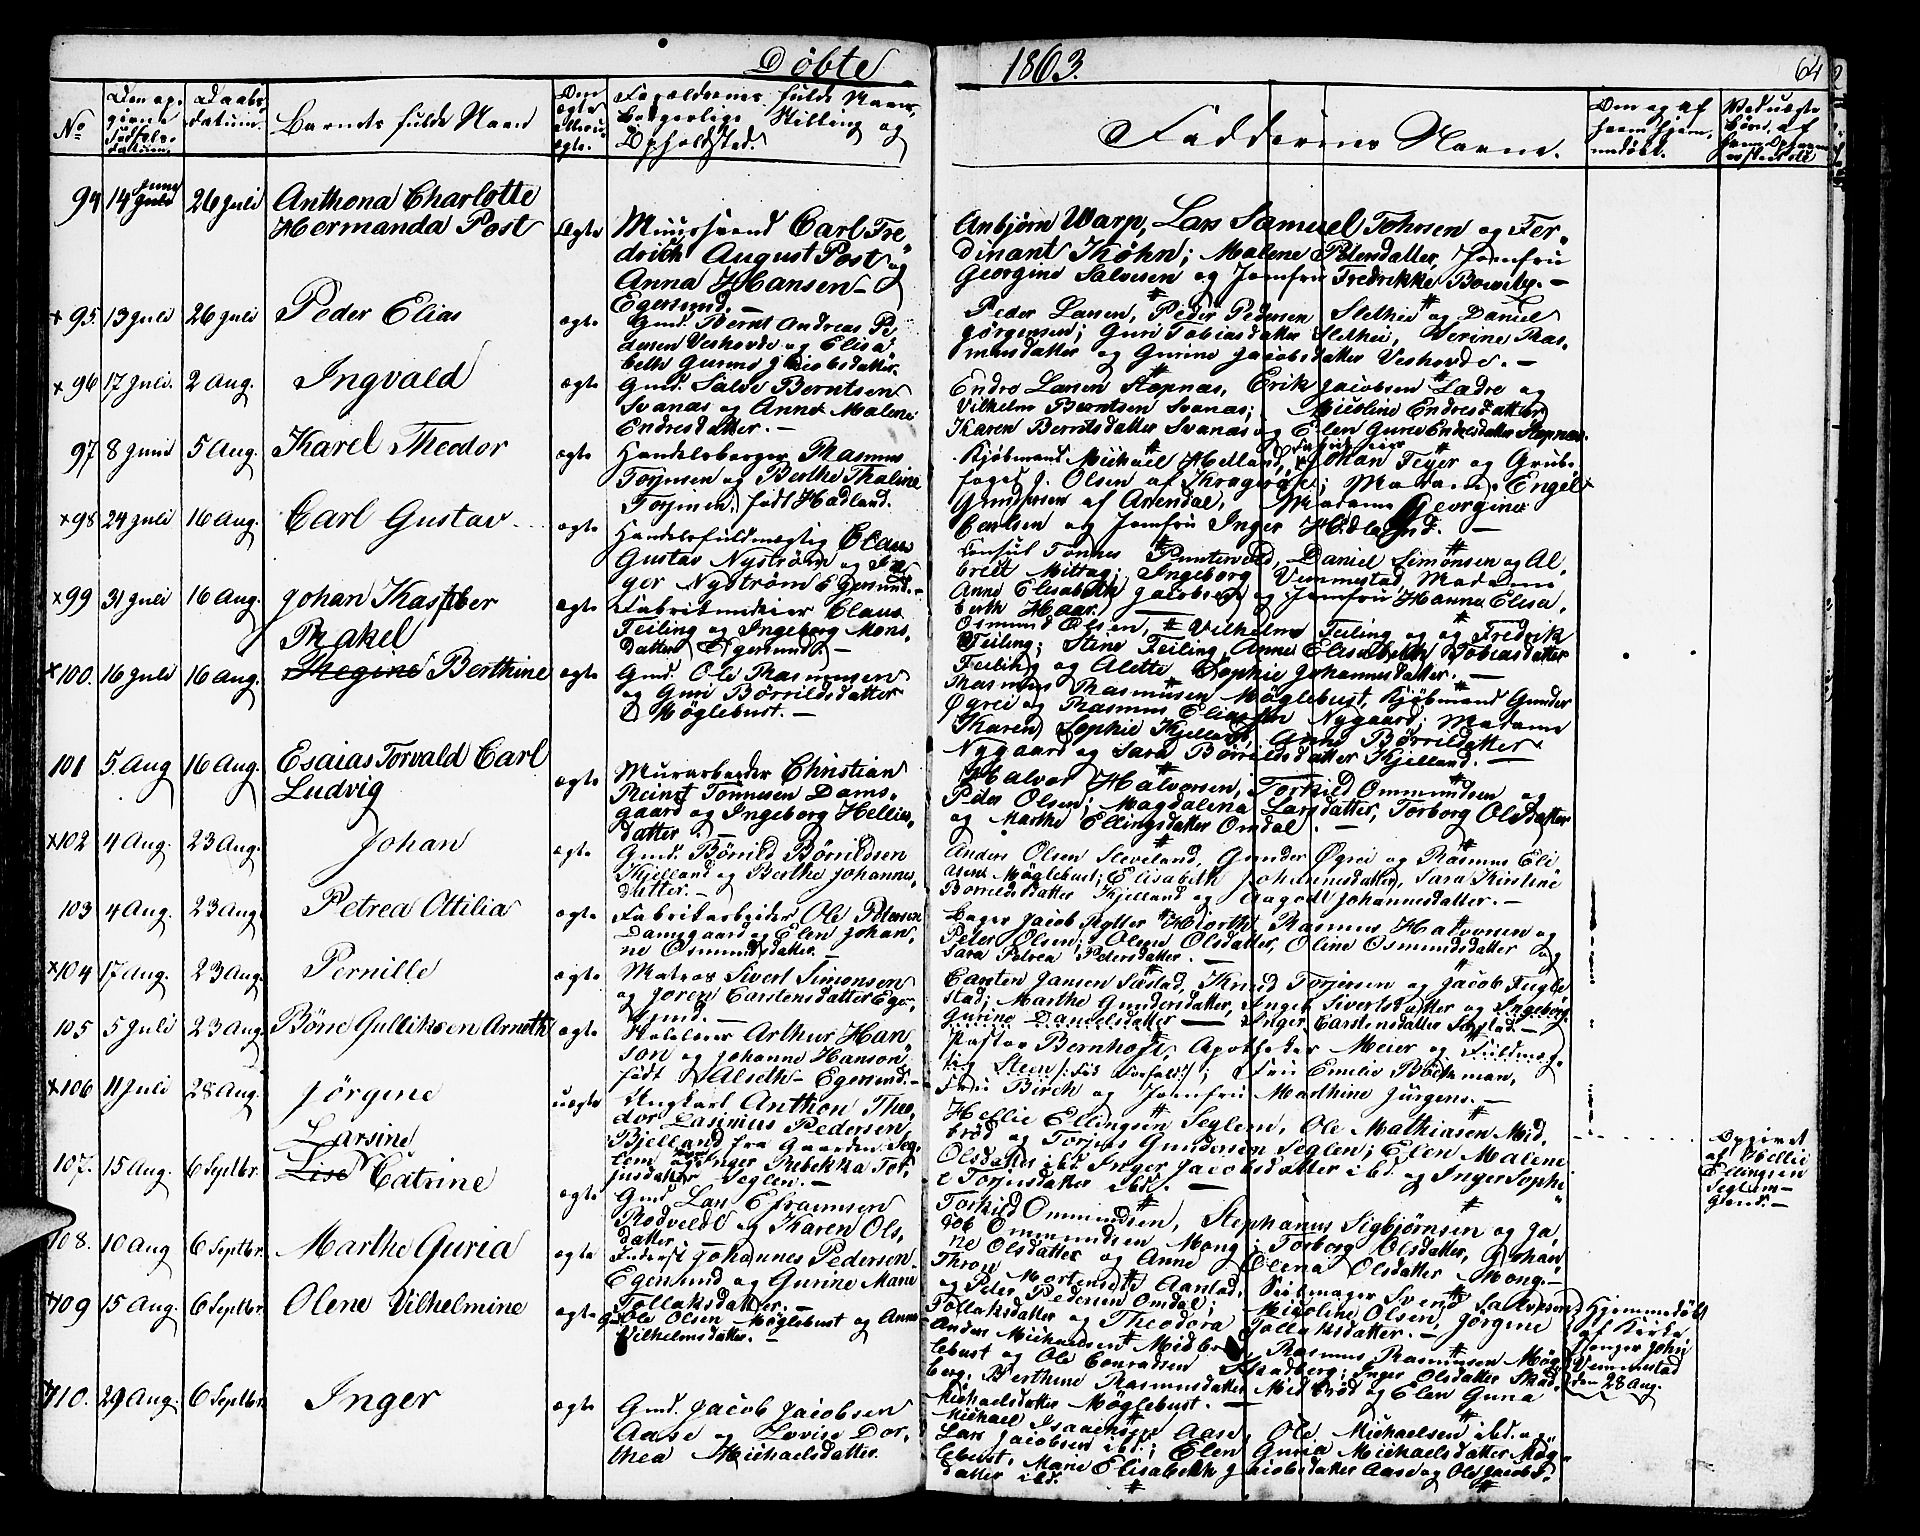 Døbte 1863. 64
No
Barnets fulde Navn
Forældrenes fulde Navn,
borgerlige Stilling og
Opholdsted.
Faddernes Navne.
94 14 Juni Juli 26 Juli Anthona Charlotte
Hermanda Post
ægte
Muursvend Carl Fre-
drich August Post og
Anna Hansen
Egersund.
Anbjørn Warp, Lars Samuel Tohrsen og Fer-
dinant Køhn; Malene Petersdatter, Jomfru
Georgine Salvesen og Jomfru Fredrikke
× 95. 13 Juli 26 Juli Peder Elias
ægte
Gmd. Bernt Andreas Pe
dersen Veshovde og Elisa
beth Gurine Jacobsdatter.
Peder Larsen, Peder Pedersen Slethei og Daniel
Jørgensen; Guri Tobiasdatter Slethei, Serine Ras-
musdatter og Gurine Jacobsdatter Veshovde.
× 96 17 Juli. 2 Aug. Ingvald
ægte
Gmd. Salve Berntsen
Svanæs og Anne Malene
Endresdatter.
Endre Larsen Hopnæs, Erik Jacobsen Lædre og
Vilhelm Berntsen Svanæs; Micoline Endresdatter
Karen Berntsdatter Svanæs og Elen Gurie Endresdatter Hopnæs.
97 8 Juni 5 Aug. Karel Theodor
ægte
Handelsborger Rasmus
Torjusen og Berthe Thaline
Torjusen, født Hadland.
Kjøbmand Michael Helland, Johan Feyer og Grube-
foged J. Olsen af Kragerø; Madame Engel
Gundersen af Arendal, Madame Georgine
Carlsen og Jomfru Inger Hadland.
× 98 24 Juli 16 Aug. Carl Gustav
ægte
Handelsfuldmægtig Claus
Gustav Nystrøm og In
ger Nystrøm Egersund.
Consul Tønnes Puntervold, Daniel Simonsen og Al-
bret Mittag; Ingeborg Vemmestad, Madame
Anne Elisabeth Jacobsen og Jomfru Hanna Elisa-
beth Haar.
× 99 31 Juli 16 Aug. Johan Kasper
ægte
Fabrikmeier Claus
Feiling og Ingeborg Mons-
datter Egersund.
Osmund Olsen, Vilhelm Feiling og og Fredrik
Feiling; Stine Feiling, Anne Elisabeth Tobiasdatter
Feiling og Alette Sophie Johannesdatter.
× 100. 16 Juli 16 Aug. Rakel
Regine Berthine
ægte
Gmd. Ole Rasmussen
og Guri Børrildsdatter
Møglebust.
Rasmus Rasmussen Møglebust, Kjøbmand Gunder
Øgrei og Rasmus Eliassen Nygaard; Madame
Karen Sophie Kjelland, Anne Børrildatter
Nygaard og Sara Børrildsdatter Kjelland.
101 5 Aug 16 Aug. Esaias Torvald Carl
Ludvig
ægte
Murarbeider Christian
Reinert Tønnesen Dams-
gaard og Ingeborg Hellies-
datter
Halvor Halvorsen, Torkild Ommundsen og
Peder Olsen; Magdalena Larsdatter, Torborg Olsdatter
og Marthe Ellingsdatter Omdal.
× 102 4 Aug. 23 Aug. Johan
ægte
Gmd. Børrild Børrildsen
Kjelland og Berthe Johannes-
datter.
Anders Olsen Sleveland, Gunder Øgrei og Rasmus Eli
asen Møglebust; Elisabeth Johannesdatter, Sara Kirstine
Børrildsdatter Kjelland og Aagodt Johannesdatter.
103 4 Aug. 23 Aug. Petrea Ottilia
ægte
Fabrikarbeider Ole Petersen
Damsgaard og Elen Johan-
ne Osmundsdatter.
Bager Jacob Rytter Hiorth, Rasmus Halvorsen og
Peter Olsen; Olene Olsdatter, Oline Osmundsdatter og
Sara Petrea Petersdatter.
× 104 17 Aug. 23 Aug. Pernille
ægte
Matros Sivert Simonsen
og Joren Carstensdatter Eger-
sund.
Carsten Jansen Sæstad, Knud Torjersen og Jacob Fugle
stad; Marthe Gundersdatter, Inger Sivertsdatter og Ingeborg
Gurine Danielsdatter — Inger Carstensdatter Sæstad.
105 5 Juli 23 Aug. Børre Gulliksen Arneth
ægte
Arthur Han-
son og Johanne Hanson
født Alseth - Egersund.
Pastor Bernhoft, Apotheker Meier og Fuldmæg-
tig Steen; Fru Emilie Bøckman,
Fru Birch og Jomfru Marthine Jürgens.
× 106 11 Juli 28 Aug. Jørgine
uægte
Ungkarl Anthon Theo-
dor Lasinius Pedersen
Bjelland fra Gaarden Seg-
lem og Inger Rebekka Tor-
jusdatter Seglen.
Hellie Ellingsen Seglem, Ole Mathiasen Mid-
brød og Torjus Gundersen Seglen; Elen Malene
Olsdatter ibd. Inger Jacobsdatter ibd. og Inger Sophi
e Torjusdatter ibd.
Opgivet
af Hellie
Ellingsen
Seglem
Gmd.
107. 15 Aug. 6 Septbr. Larsine
Lise Catrine
ægte
Gmd. Lars Efraimsen
Rodvelds og Karen Ols-
datter
Torkild Ommundsen, Stephanus Sigbjørnsen og Ja-
cob Ommundsen Mong; Torborg Olsdatter, Johan
ne Olsdatter og Anne Elena Olsdatter Mong.
108. 10 Aug 6 Septbr. Marthe Guria
ægte
Johannes Pedersen
Egersund og Gurine Marie
Tollaksdatter.
Throe Mortensen Aarstad, Seilmager Svend Salvesen
og Peter Pedersen Omdal; Micoline Olsen, Jørgine
Tollaksdatter og Theodora Tollaksdatter.
× 109 15 Aug. 6 Septbr. Olene Vilhelmine
ægte
Gmd. Ole Olsen Møglebust og Anne
Vilhelmsdatter.
Anders Michaelsen Midbrø, Rasmus Rasmussen Møg-
lebust og Ole Conradsen Skadberg; Inger Olsdatter Skad
berg, Berthine Rasmusdatter Midbrød og Elen Guria
Michaelsdatter Møglebust.
Hjemmedøbt
af Kirke-
sanger John
Vemmestad
den 28 Aug.
× 110. 29 Aug. 6 Septbr. Inger
ægte
Gmd. Jacob Jacobsen
Aase og Lovise Dor-
thea Michaelsdatter.
Michael Isaachsen Aase, Ole Michaelsen ibd. og
Lars Jacobsen ibd.; Elen Guria Michaelsdatter Møg-
lebust, Marie Elisabeth Jacobsdatter Aase og Ole Jacobs-
datter ibd.